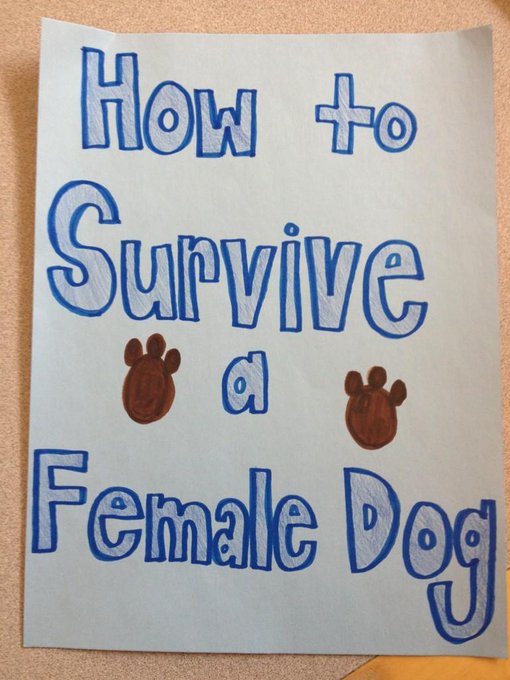 How to
Survive
a
Female Dog